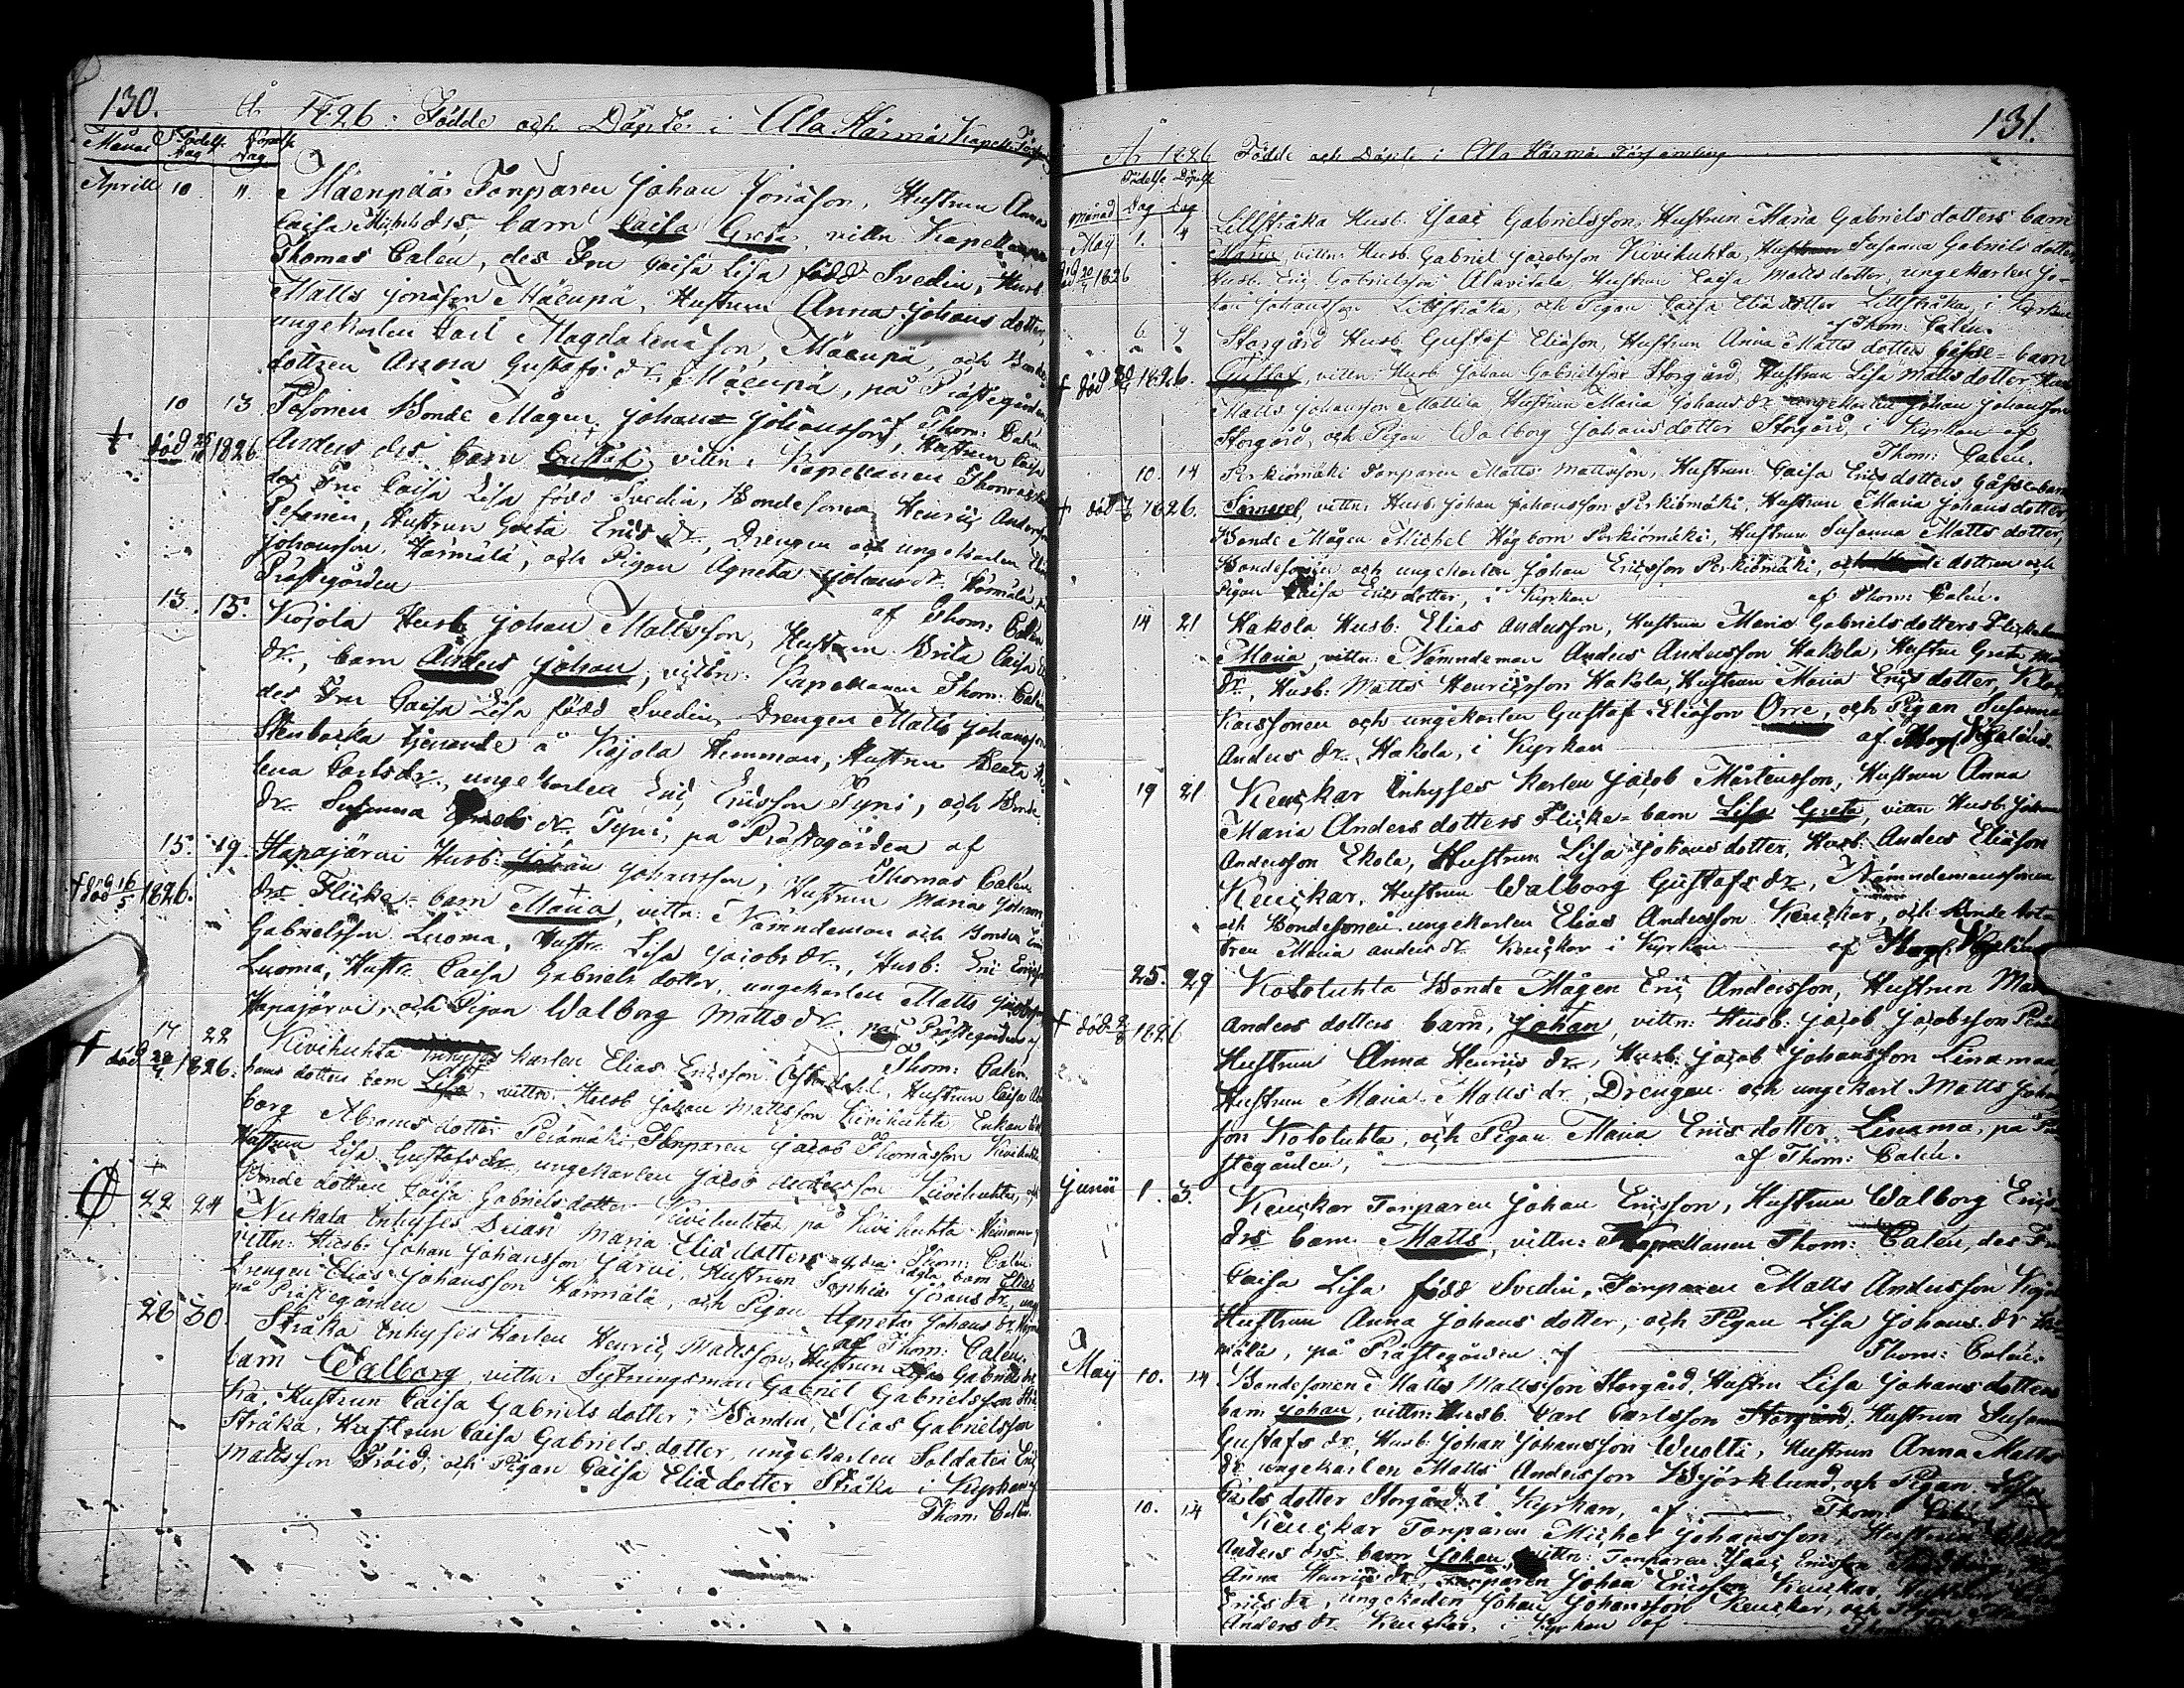 130.
År 1826. Födde och Döpte i Ala Härmä Kapells
Månad Födelse Dag Döpelse Dag
Aprill 10 11. Mäenpää Torparen Johan Jonäson, Hustrun Anna
Caisa Michels drs, barn Caisa Greta, vittn. Kapellanen
Thomas Calen, des Fru Caisa Lisa född Svedin, Husb.
Matts Jonäson Mäenpä, Hustrun Anna Johans dotter,
ungekarlen Carl Magdalenäson, Mäenpä, och Bonde
dottren Anna Gustafs dr. Mäenpä, på Prästegården
af Thom: Calen.
10 13 Pesonen Bonde Mågen Johan Johansson, Hustrun Caisa
† död 25/10 1826 Anders drs. barn Gustaf, vittn: Kapellanen Thomas
des Fru Caisa Lisa född Svedin, Bondesonen Henric Andersson
Pesonen, Hustrun Greta Erics dr., Drengen och ungekarlen
Johansson, Härmälä, och Pigan Agneta Johans dr. Härmälä,
Prästegården af Thom: Calen
13. 15. Kojola Husb. Johan Mattsson, Hustrun Brita Caisa
dr., barn Anders Johan, vittn: Kapellanen Thom: Calen,
des Fru Caisa Lisa född Svedin, Drengen Matts Johansson
Stenbacka tjenande å Kojola Hemman, Hustrun Beata
lena Carlsdr., ungekarlen Eric Ericsson Tyni, och Bonde
dr. Susanna dr. Tyni, på Prästegården af
Thomas Calen
15. 19. Hapajärvi Husb: Johan Johansson, Hustrun Maria Johans
† död 16/5 1826. drs. Flicke-barn Maria, vittn: Nämndeman och Bonden
Gabrielsson Luoma, Hustr. Lisa Jacobs dr., Husb: Eric Ericsson
Luoma, Hustr. Caisa Gabriels dotter, ungekarlen Matts
Hapajärvi, och Pigan Walborg Matts dr. på Prästegården
af Thom: Calen
17 22 Kivihuhta Inhyses karlen Elias Ericsson Österdahl, Hustrun Caisa
† död 29/4 1826. hans dotters barn Lisa, vittn: Husb Johan Mattsson Kivihuhta, Enkan
borg Abrams dotter Perämäki, Torparen Jacob Thomasson Kivihuhta
Hustrun Lisa Gustafs dr., ungekarlen Jacob Andersson Kivihuhta,
Bonde dottren Caisa Gabriels dotter Kivihuhta på Kivihuhta Hemman
Thom: Calen
22 24 Nukala Inhyses Maria Elia dotters barn Elias
vittn: Husb: Johan Johansson Järvi, Hustrun Sophia Johans dr.,
Drengen Elias Johansson Härmälä, och Pigan Agneta Johans dr.
på Prästegården af Thom: Calen.
26 30. Stråka Inhyses Karlen Henric Mattsson, Hustrun Lisa Gabriels
barn Walborg, vittn: Sytningsman Gabriel Gabrielsson
ka, Hustrun Caisa Gabriels dotter, Bonden, Elias Gabrielsson
Stråka, Hustrun Caisa Gabriels dotter, ungekarlen Soldaten Eric
Mattsson Fröid, och Pigan Caisa Elia dotter Stråka i Kyrkan
Thom: Calen.
131.
År 1826 Födde och Döpte i Ala Härmä Församling
Månad Födelse Dag Döpelse Dag
May 1. 4 Lillstråka Husb. Isaac Gabrielsson, Hustrun Maria Gabriels dotters barn
Maria, vittn: Husb. Gabriel Jacobsson Kivihuhta, Hustrun Susanna Gabriels dotter
1826 Husb. Eric Gabrielsson Alavitala, Hustrun Caisa Matts dotter, ungekarlen Jo-
han Johansson Lillstråka, och Pigan Caisa Elia dotter Lillstråka, i Kyrkan
af Thom: Calen.
6 7 Storgård Husb. Gustaf Eliäson, Hustrun Anna Matts dotters Gosse-barn
† död 1826. Gustaf, vittn: Husb Johan Gabrielsson Storgård, Hustrun Lisa Matts dotter,
Matts Johansson Mattila, Hustrun Maria Johans dr. ungekarlen Johan Johansson
Storgård, och Pigan Walborg Johans dotter Storgård, i Kyrkan af
Thom: Calen.
10. 14 Perkiömäki Torparen Matts Mattsson, Hustrun Caisa Erics dotters Gosse-barn
† död 1826. Samuel, vittn: Husb. Johan Johansson Perkiömäki, Hustrun Maria Johans dotter,
Bonde Mågen Michel Högbom Perkiömäki, Hustrun Susanna Matts dotter,
Bondesonen och ungekarlen Johan Ericsson Perkiömäki, dottren och
Pigan Caisa Erics dotter, i Kyrkan af Thom: Calen.
14 21 Hakola Husb: Elias Andersson, Hustrun Maria Gabriels dotters Flickebarn
Maria, vittn: Nämndeman Anders Andersson Hakola, Hustru Greta
dr., Husb: Matts Henricsson Hakola, Hustrun Maria Erics dotter,
och ungekarlen Gustaf Eliäson Orre, och Pigan Susanna
Anders dr. Hakola, i Kyrkan af
19 21 Keuckar Inhyses karlen Jacob Mårtensson, Hustrun Anna
Maria Anders dotters Flicke-barn Lisa Greta, vittn Husb: Johan
Andersson Ekola, Hustrun Lisa Johans dotter, Husb: Anders Eliäson
Keuckar, Hustrun Walborg Gustafs dr., Nämndemanssonen
och Bondesonen, ungekarlen Elias Andersson Keuckar, och Bonde
dren Maria Anders dr. Keuckar i Kyrkan af
25. 29 Kotoluhta Bonde Mågen Eric Andersson, Hustrun
† död 9/8 1826 Anders dotters barn, Johan, vittn: Husb. Jacob Jacobsson
Hustrun Anna Henrics dr., Husb: Jacob Johansson Linamaa
Hustrun Maria Matts dr., Drengen och ungekarl. Matts Johans
son Kotoluhta, och Pigan Maria Erics dotter Linama, på
stegården, af Thom: Calen.
Junii 1. 3. Keuckar Torparen Johan Ericsson, Hustrun Walborg Erics
drs barn Matts, vittn: Kapellanen Thom: Calen, des Fru
Caisa Lisa född Svedin, Torparen Matts Andersson
Hustrun Anna Johans dotter, och Pigan Lisa Johans dr
mälä, på Prästegården af Thom: Calen.
May 10. 14 Bondesonen Matts Mattsson Storgård, Hustru Lisa Johans dotters
barn Johan, vittn: Husb. Carl Carlsson Storgård, Hustrun Susanna
Gustafs dr., Husb: Johan Johansson Wuolti, Hustrun Anna Matts
dr. ungekarlen Matts Andersson Björklund, och Pigan Lisa
Carls dotter Storgård i Kyrkan, af Thom: Calen
10. 14 Keuckar Torparen Michel Johansson, Hustrun
Anders drs barn Johan, vittn: Torparen Isaac Ericsson
Anna Henrics dr., Torparen Johan Ericsson Keuckar, Hustrun
Erics dr., ungekarlen Johan Johansson Keuckar, och Pigan
Anders dr. Keuckar, i Kyrkan af